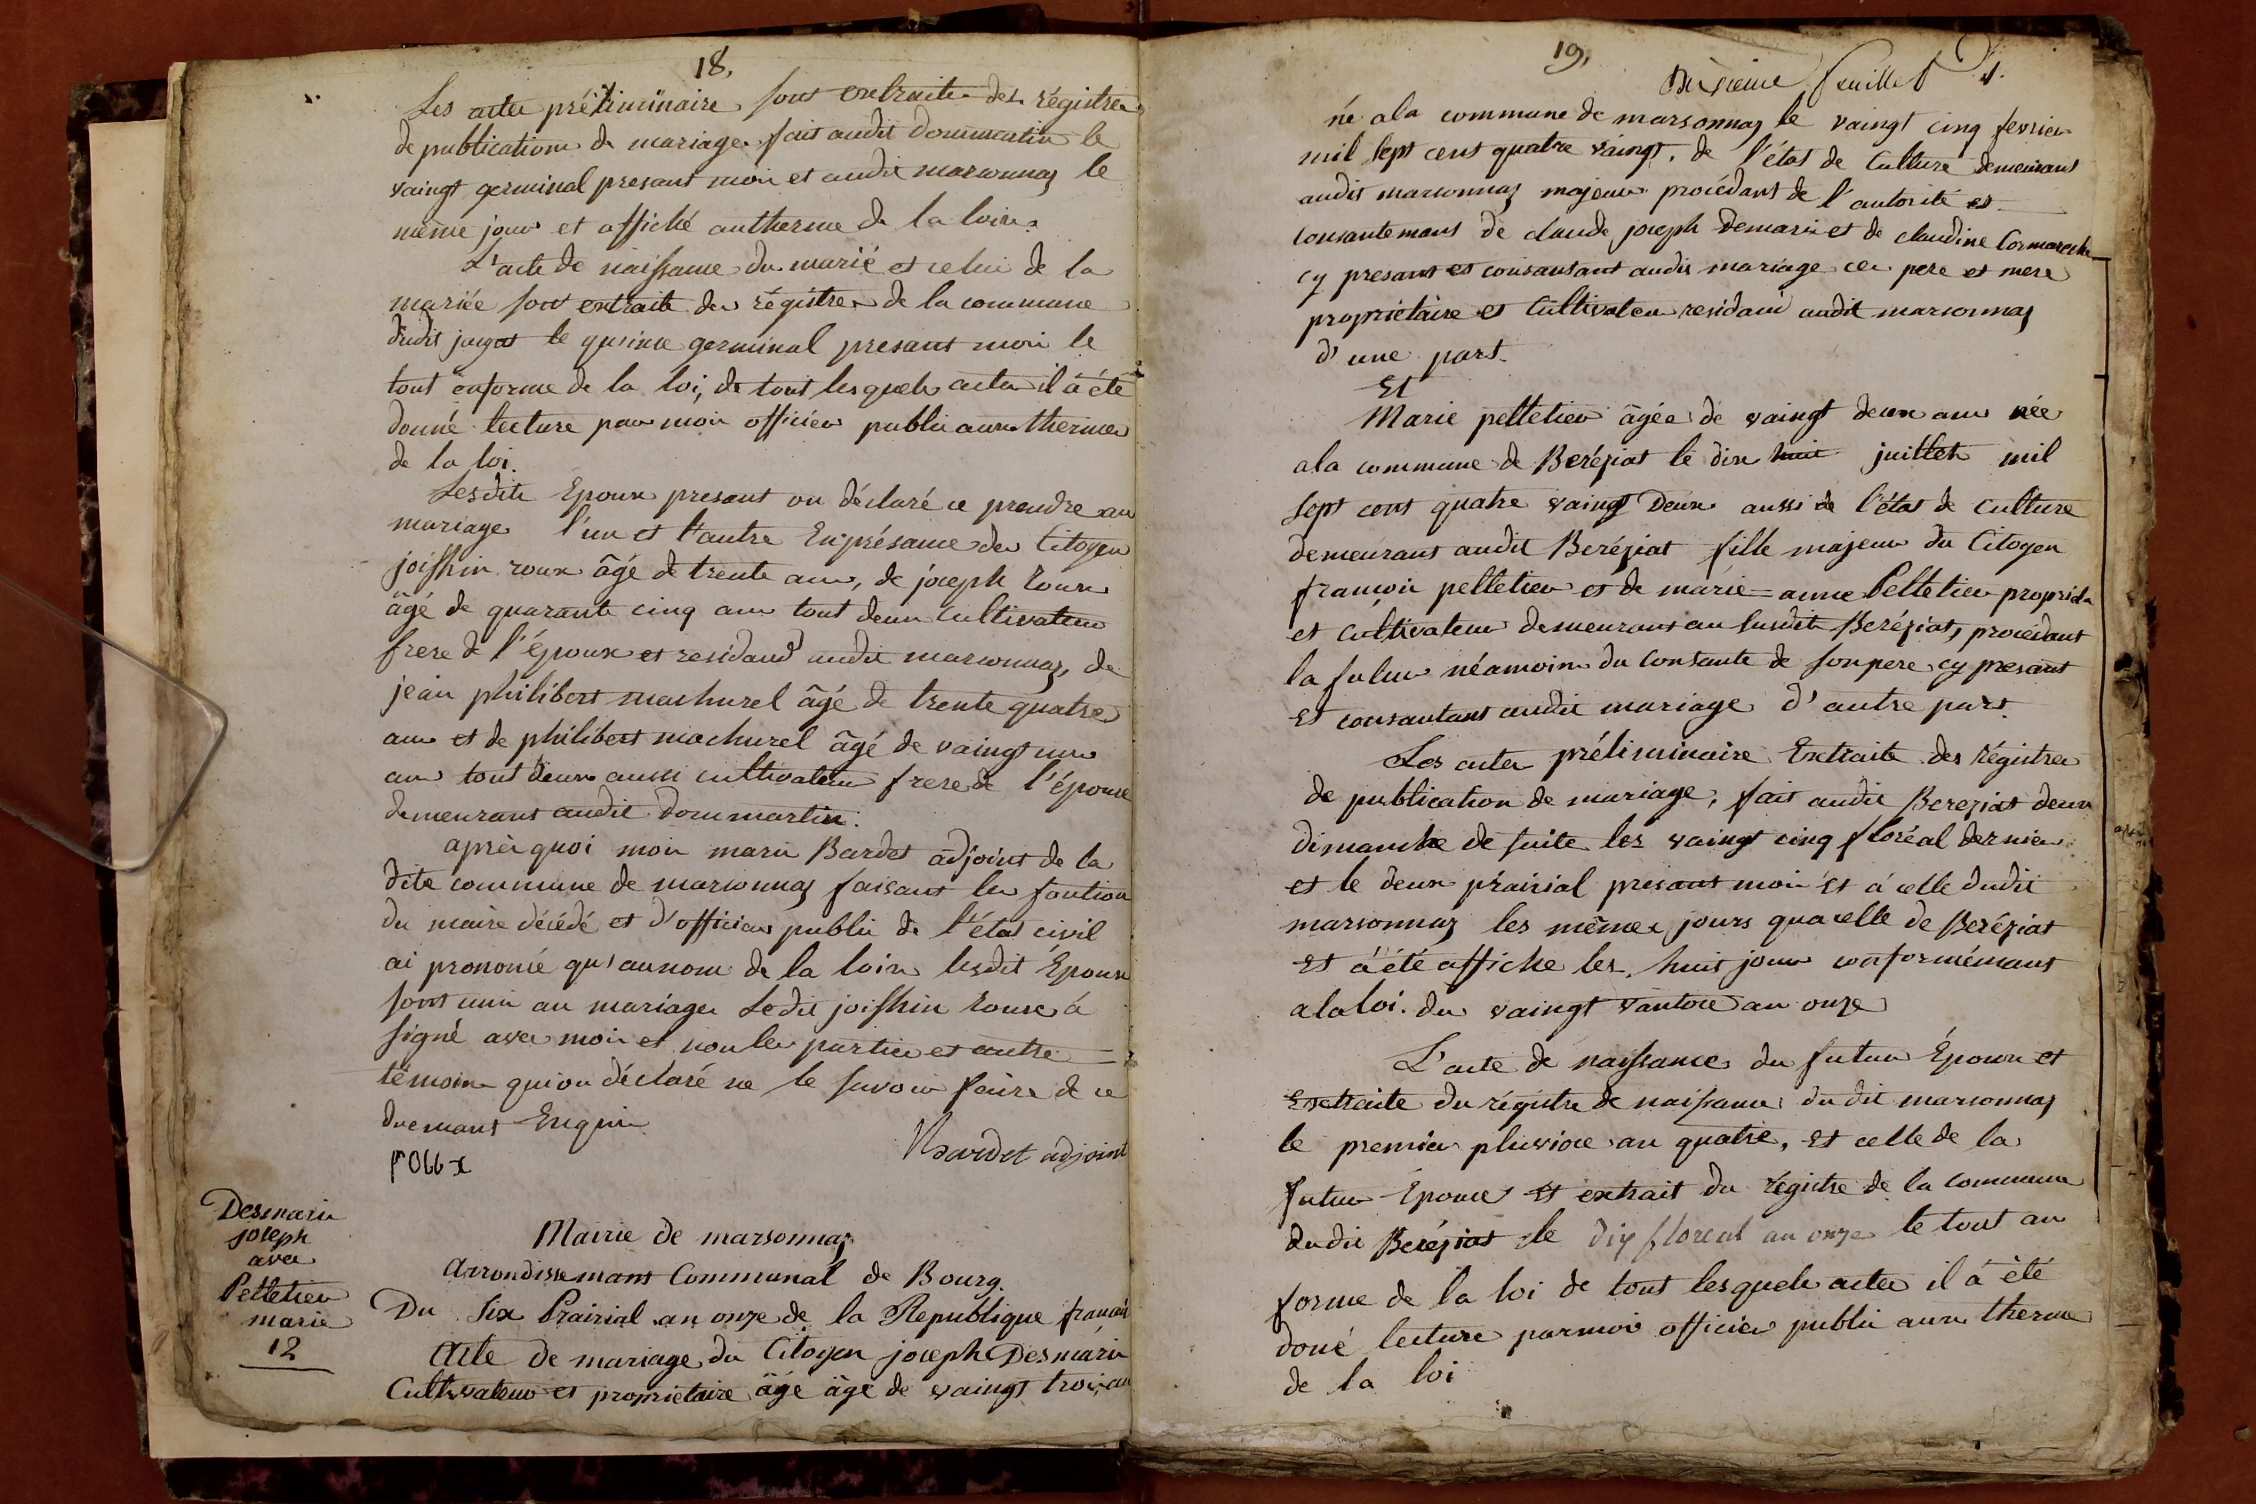 18.
Les actes préliminaire sont extraite des régistres
de publications de mariage fait audit dommartin le
vaingt germinal presant mois et audit marsonnaz le
même jour et affiché autherme de la loix.
L'acte de naissance du marié et celui de la
mariée sont extraits des régistres de la commune
dudit jayat le quinze germinal presant mois le
tout enforme de la loi, de tout lesquels actes il à été
donné lecture par moi officier public aux thermes
de la loi.
Lesdits Epoux presant on déclaré ce prendre au
mariage l'un et l'autre En présance des Citoyen
joissin roux âgé de trente ans, de joseph roux
âgé de quarante cinq ans tout deux cultivateur
frere de l'époux et residand audit marsonnaz, de
jean philibert machurel âgé de trente quatre
ans et de philibert machurel âgé de vaingt un
ans tout deux aussi cultivateur frere de l'épouse
demeurant audit dommartin.
après quoi moi marie Bardet adjoint de la
dite commune de marsonnaz faisant les fontion
du maire décédé et d'officier public de l'état civil
ai prononcé qu'aunom de la loix lesdit Époux
sont unis au mariage Ledit joisshin roux à
signé avec moi et non les parties et autre
témoins qui on déclaré ne le savoir faire de ce
duemant Enquis
Bardet adjoint
Desmaris
joseph
avec
Pelletier
marie
12
Mairie de marsonnaz
Arrondissemant Communal de Bourg.
Du Six Prairial an onze de la Republique français
Acte de mariage du Citoyen joseph Desmaris
Cultivateur et propriétaire âgé âgé de vaingt trois ans
19.
Dixieme feuillet
né ala commune de marsonnaz le vaingt cinq fevrier
mil sept cent quatre vaingt, de l'état de Culture demeurant
audit marsonnaz majeur procédant de l'autorité et
consantemant de claude joseph Demaris et de claudine Cormareche
cy presant et consantant audit mariage ces pere et mere
propriétaire et Cultivateur residand audit marsonnaz
d'une part.
Et
Marie pelletier âgée de vaingt deux ans née
ala commune de Beréziat le dix huit juillet mil
sept cent quatre vaingt Deux aussi de l'état de culture
demeurant audit Beréziat fille majeur du Citoyen
françois pelletier et de marie=anne Pelletier propriet.
et cultivateur demeurant au susdit Beréziat, procédant
la futur néamoins du consante de son pere cy presant
et consantant audit mariage d'autre part.
Les actes préliminaire Extraite des régistres
de publication de mariage, fait audit Bereziat deux
dimanche de suite les vaingt cinq floréal dernier
et le deux prairial presant mois et à celle dudit
marsonnaz les mêmes jours qua celle de Beréziat
et à été affiche les huit jour conformémant
ala loi. du vaingt vantose an onze
L'acte de naissance du futur Époux et
Extraite du régistre de naissance du dit marsonnaz
le premier pluviose an quatre, et celle de la
futur Epouse et extrait du régistre de la commune
dudit Beréziat le dix floreal an onze le tout au
forme de la loi de tout lesquels actes il à été
doné lecture par moi officier public aux therme
de la loi